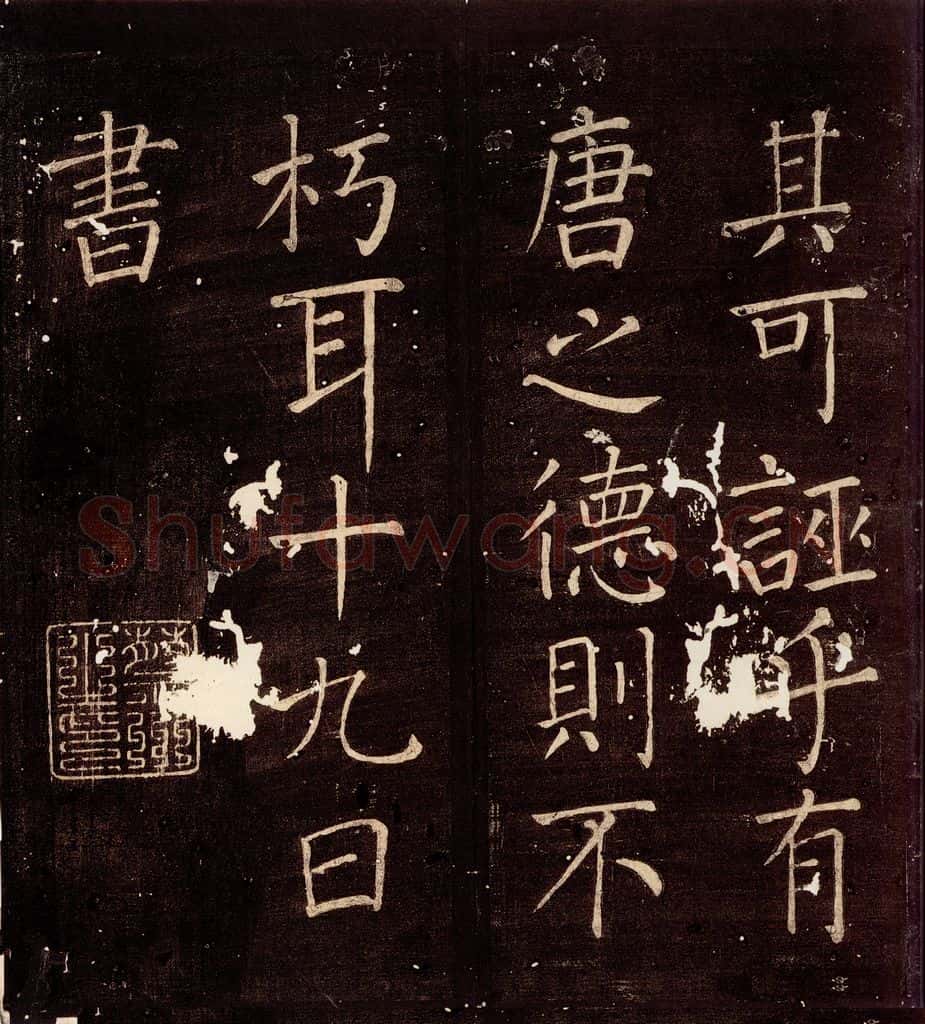 其可誣乎有
唐之德則不
朽耳十九日
書
Shufawang.cn